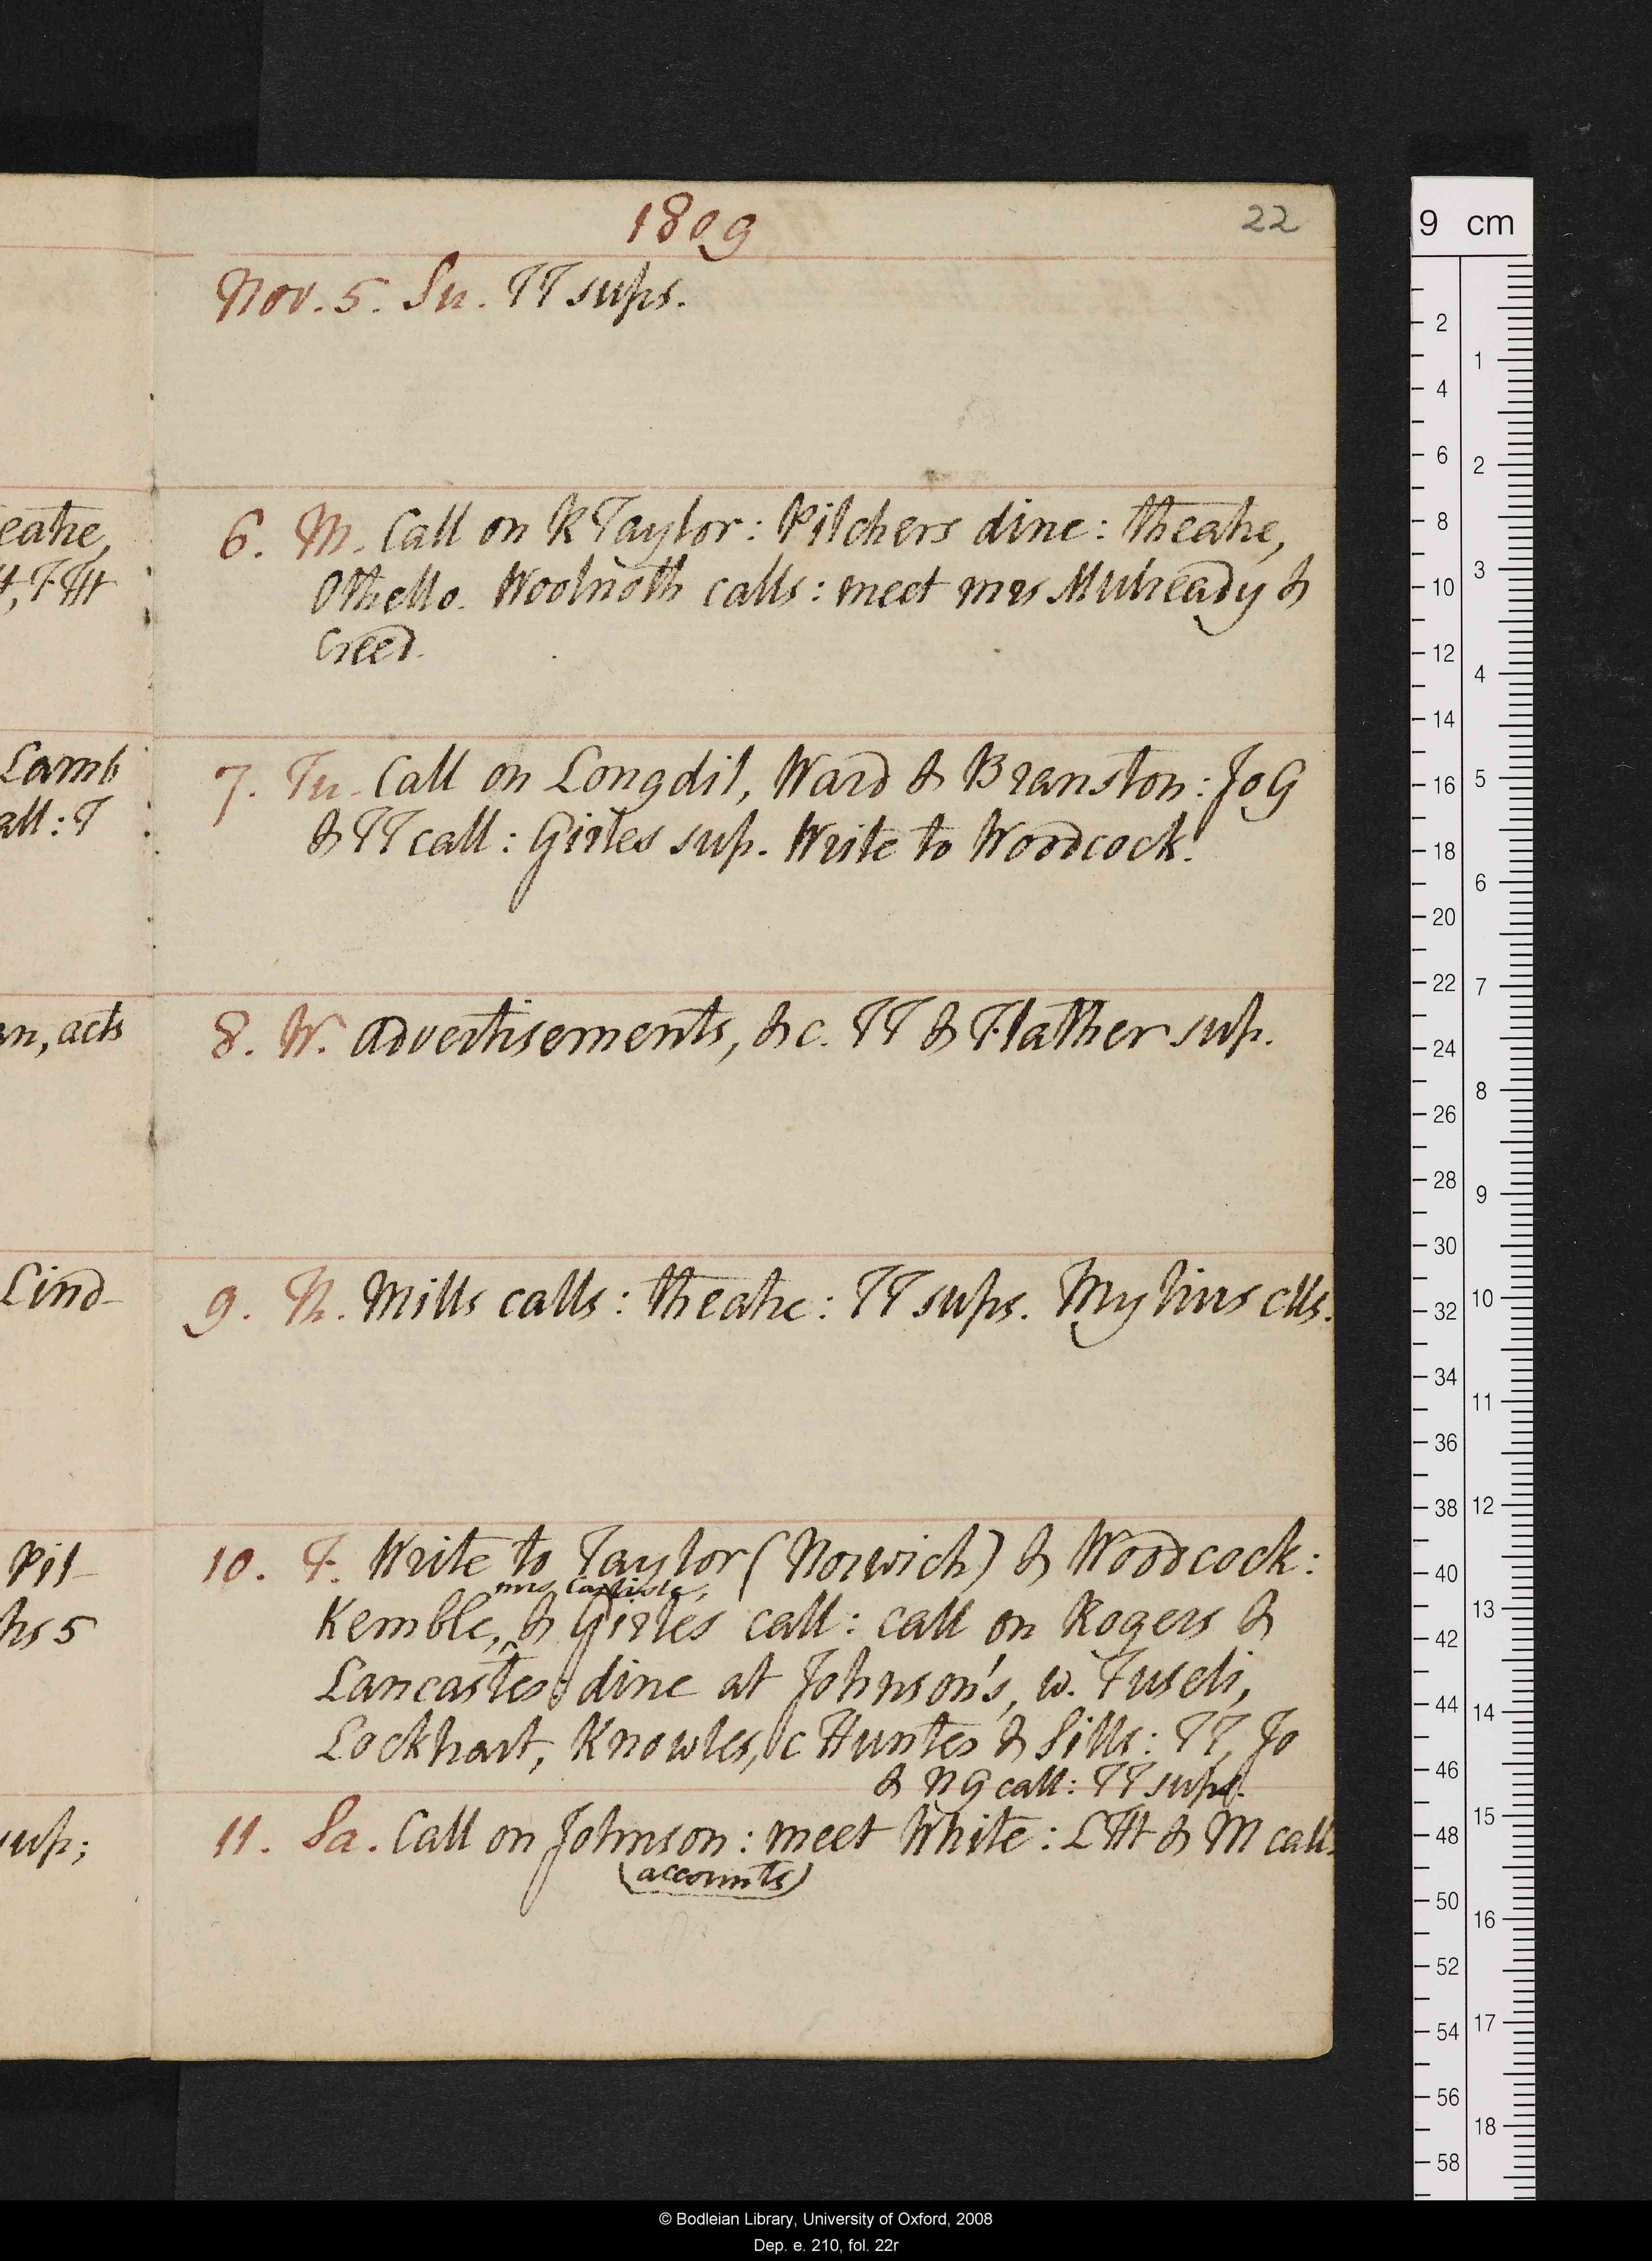 1809
22
Nov. 5. Su. TT sups.
eatre,
t, F Ht
6. M. Call on R Taylor: Pilchers dine: theatre,
Othello. Woolnoth calls: meet mrs Mulready &
Creed.
Lamb
all: T
7. Tu. Call on Longdil, Ward & Branston: Jo G
& TT call: Girles sup. Write to Woodcock.
n, acts
8. W. Advertisements, &c. TT & Flather sup.
Lind-
9. Th. Mills calls: theatre: TT sups. Mylius clls.
Pil-
hs 5
10. F. Write to Taylor (Norwich) & Woodcock:
mrs Carlisle,
Kemble, ^ & Girles call: call on Rogers &
Lancaster: dine at Johnson's, w. Fuseli,
Lockhart, Knowles, c Hunter & Sills: TT, Jo
& N G call: TT sups.
sup;
11. Sa. Call on Johnson: meet White: L Ht & M call.
(accounts)
9 cm
2
4
6
8
10
12
14
16
18
20
22
24
26
28
30
32
34
36
38
40
42
44
46
48
50
52
54
56
58
1
2
3
4
5
6
7
8
9
10
11
12
13
14
15
16
17
18
© Bodleian Library, University of Oxford, 2008
Dep. e. 210, fol. 22r